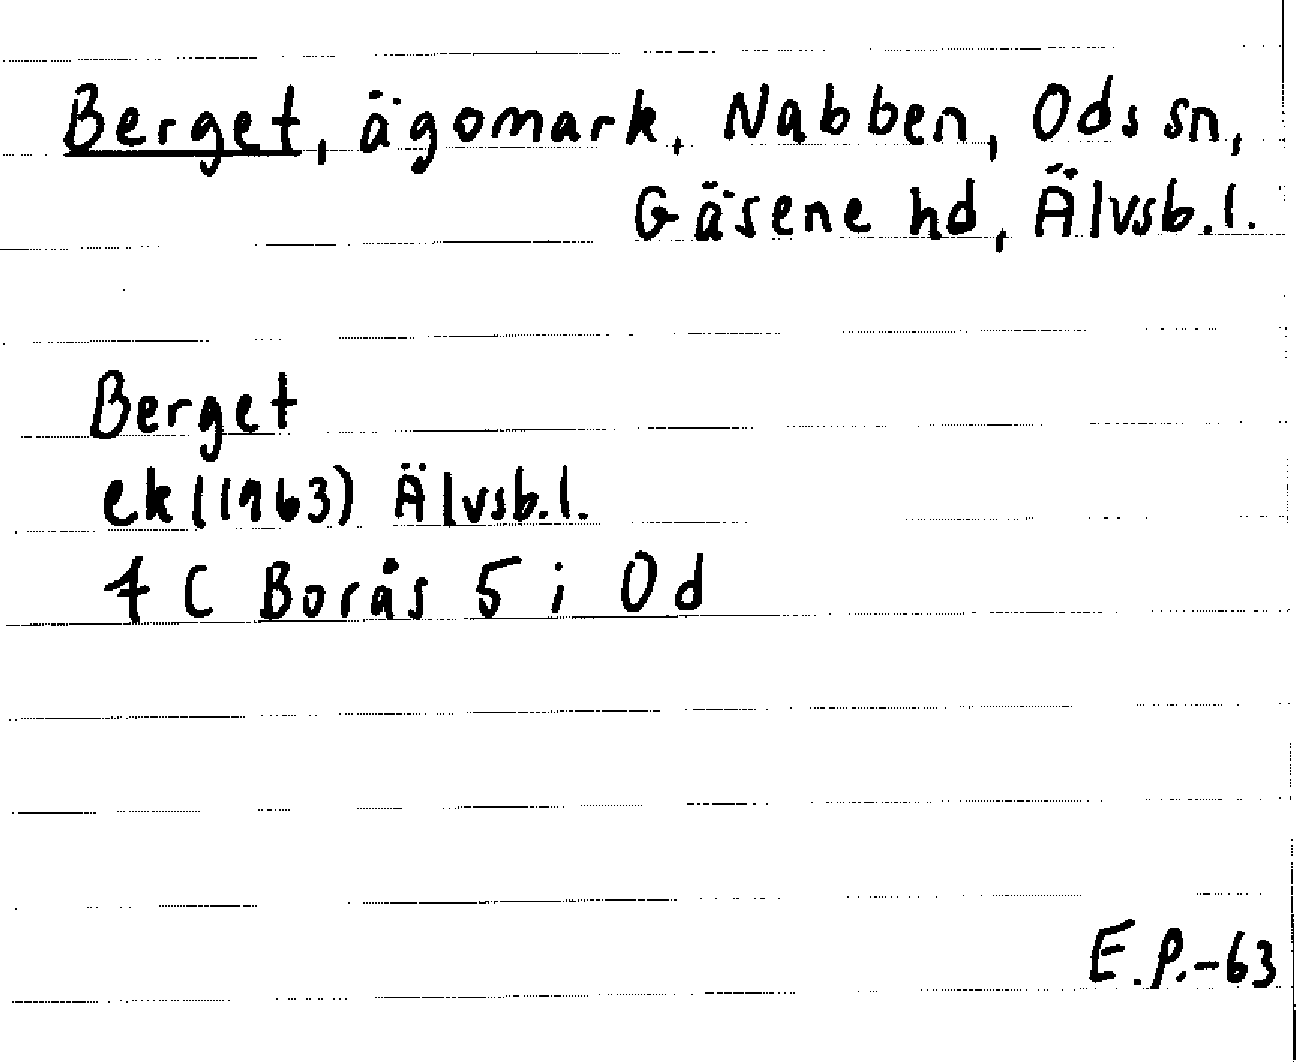 Berget, ägomark, Nabben, Ods sn,
Gäsene hd, Älvsb.l.
Berget
ek (1963) Älvsb.l.
7 C Borås 5 i Od
E.P.-63